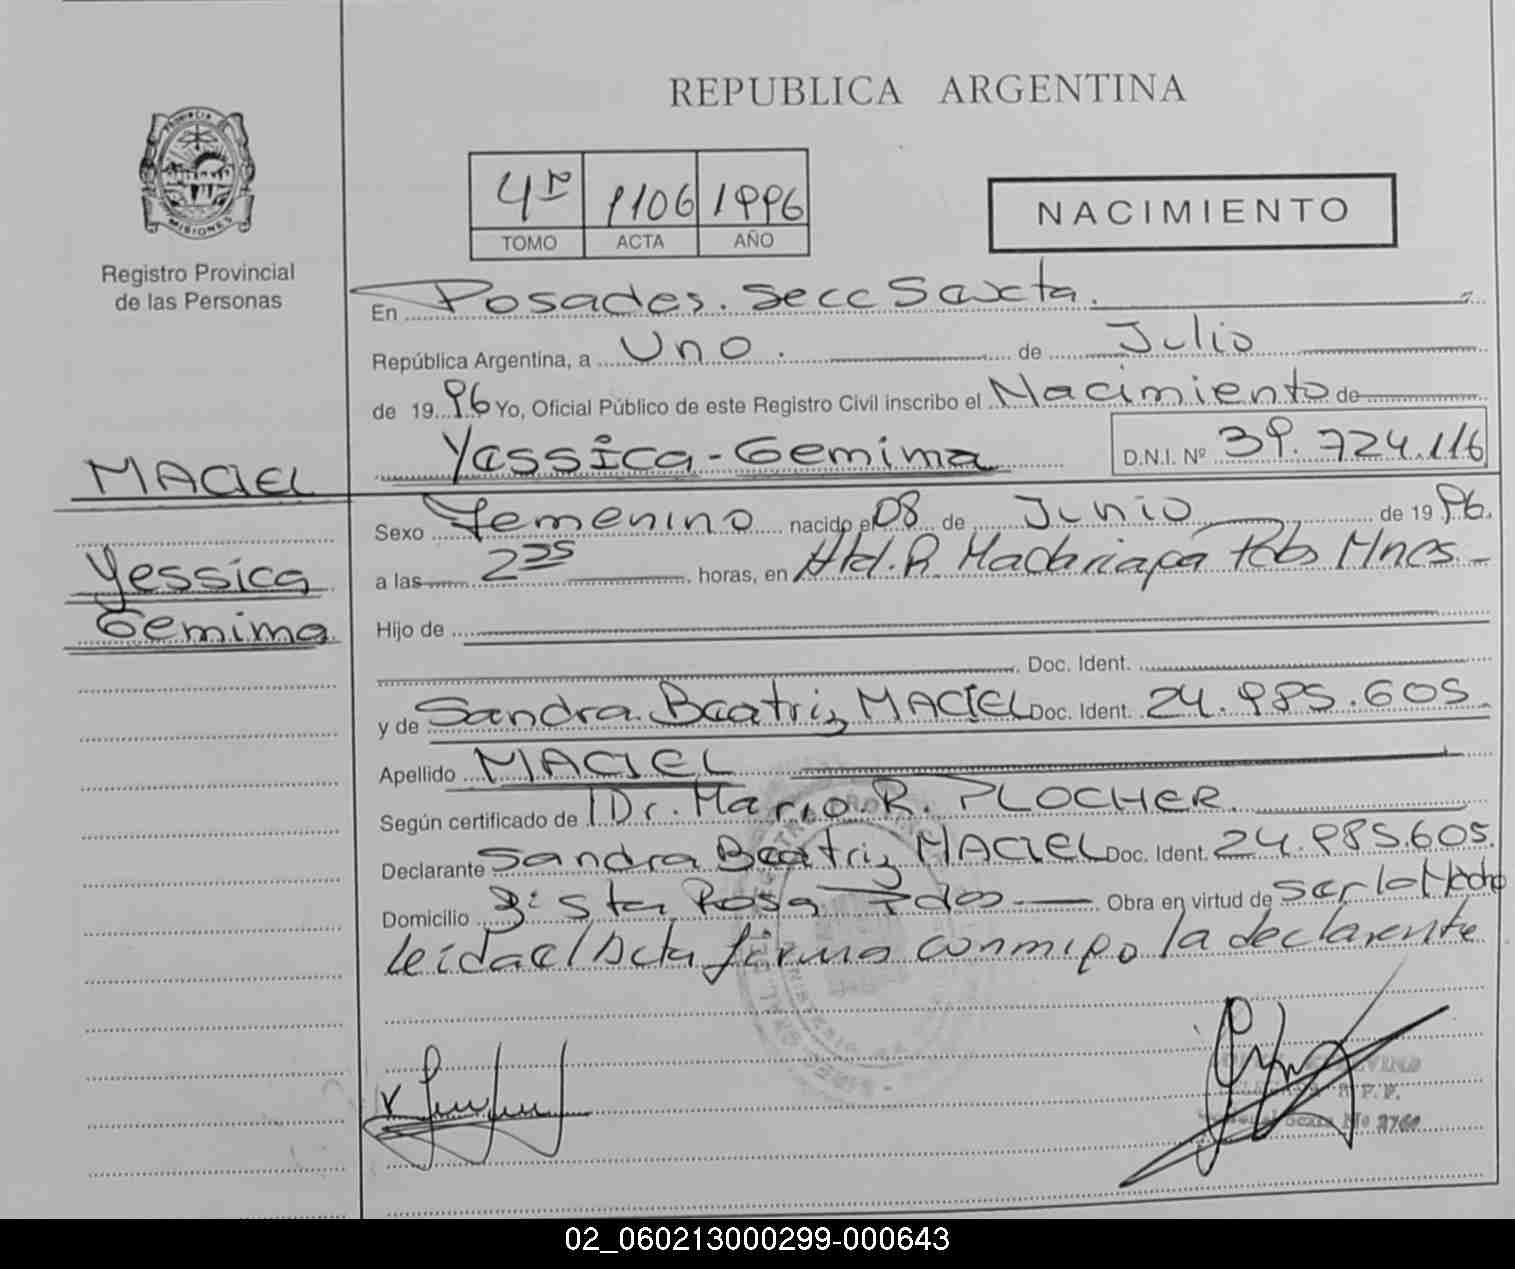 REPUBLICA ARGENTINA
PROVINCIA DE
MISIONES
Registro Provincial
de las Personas
4º 1106 1996
TOMO ACTA AÑO
NACIMIENTO
En Posadas. Secc Sexta.
República Argentina, a Uno. de Julio
de 1996 Yo, Oficial Público de este Registro Civil inscribo el Nacimiento de
Yessica-Gemima D.N.I. Nº 39.724.116
MACIEL
Yessica
Gemima
Sexo Femenino nacido el 08 de Junio de 1996.
a las 2 35 horas, en R. Madariaga Mnes
Hijo de
Doc. Ident.
y de Sandra Beatriz MACIEL Doc. Ident. 24.985.605
Apellido MACIEL
Según certificado de Dr. Mario R. PLOCHER
Declarante Sandra Beatriz MACIEL Doc. Ident. 24.985.605.
Domicilio Bº Sta Rosa Pdas Obra en virtud de ser la Madre
leida el Acta firma conmigo la declarante
02_060213000299-000643